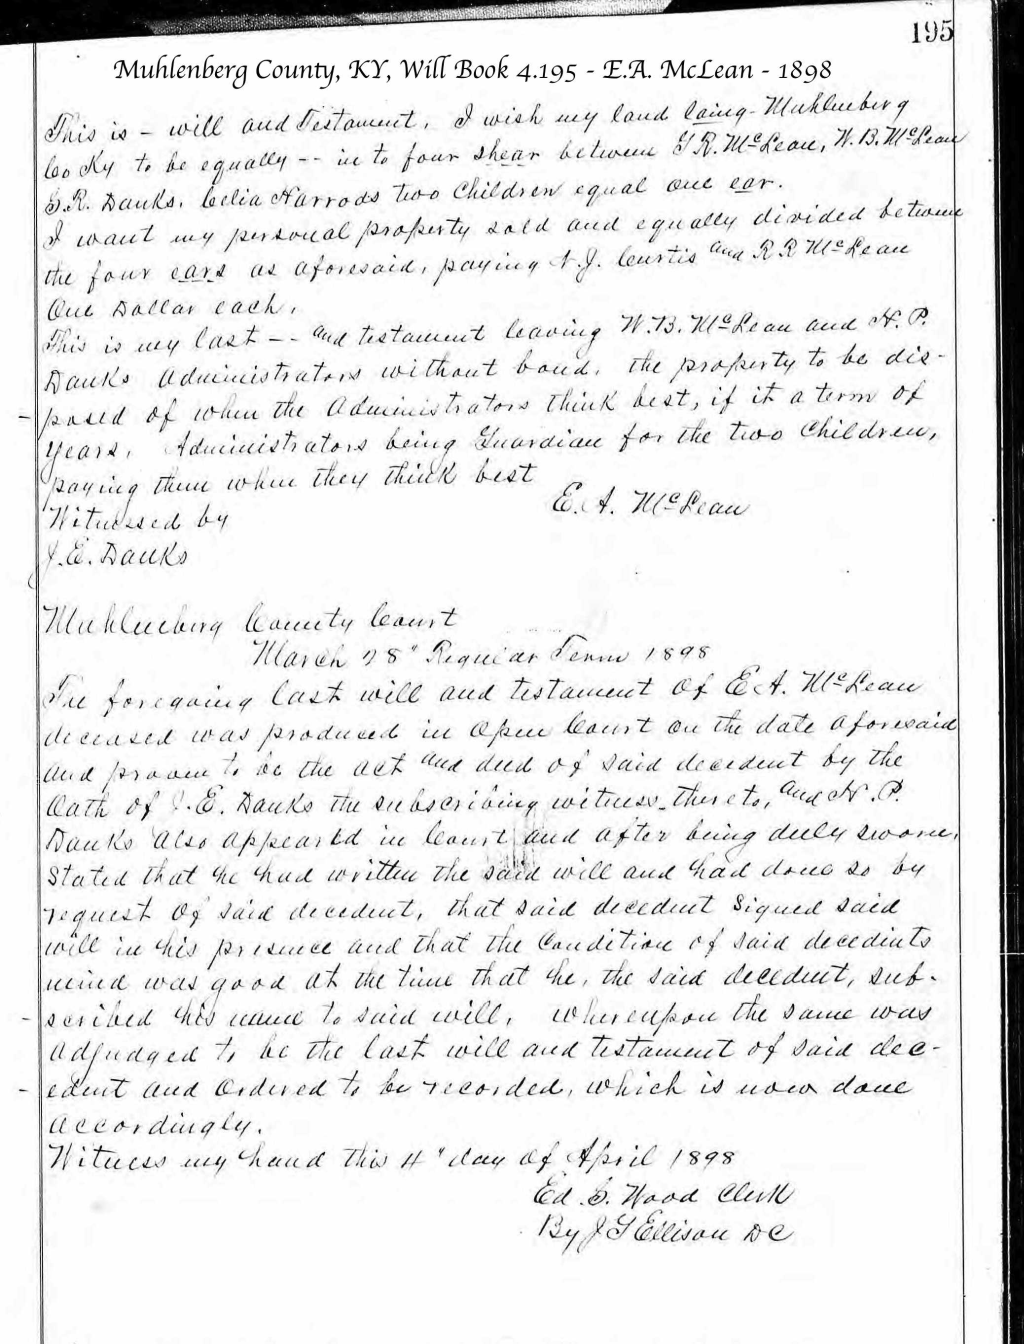 195
Muhlenberg County, KY, Will Book 4.195 - E.A. McLean - 1898
This is – will and Testament. I wish my land laing - Muhlenberg
Co Ky to be equally -- in to four shear between G R. McLean, W. B. McLean
G. R. Danks. Celia Harrods two Children equal one ear.
I want my personal property sold and equally divided between
the four ears as aforesaid, paying N. J. Curtis and R R McLean
One Dollar each.
This is my last -- and testament leaving W. B. McLean and H. P.
Danks Administrators without bond. the property to be dis-
posed of when the Administrators think best, if it a term of
years. Administrators being Guardian for the two Children,
paying them when they think best
E. A. McLean
Witnessed by
J. E. Danks
Muhlenberg County Court
March 28" Regular Term 1898
The foregoing last will and testament of E A. McLean
deceased was produced in Open Court on the date aforesaid
and proven to be the act and deed of said decedent by the
Oath of J. E. Danks the subscribing witness thereto, and H. P.
Danks also appeared in Court and after being duly sworn,
Stated that he had written the said will and had done so by
request of said decedent, that said decedent Signed said
will in his presence and that the Condition of said decedents
mind was good at the time that he, the said decedent, sub-
scribed his name to said will, whereupon the same was
adjudged to be the last will and testament of said dec-
edent and ordered to be recorded, which is now done
accordingly.
Witness my hand this 4" day of April 1898
Ed. S. Wood Clerk
By J G Ellison DC